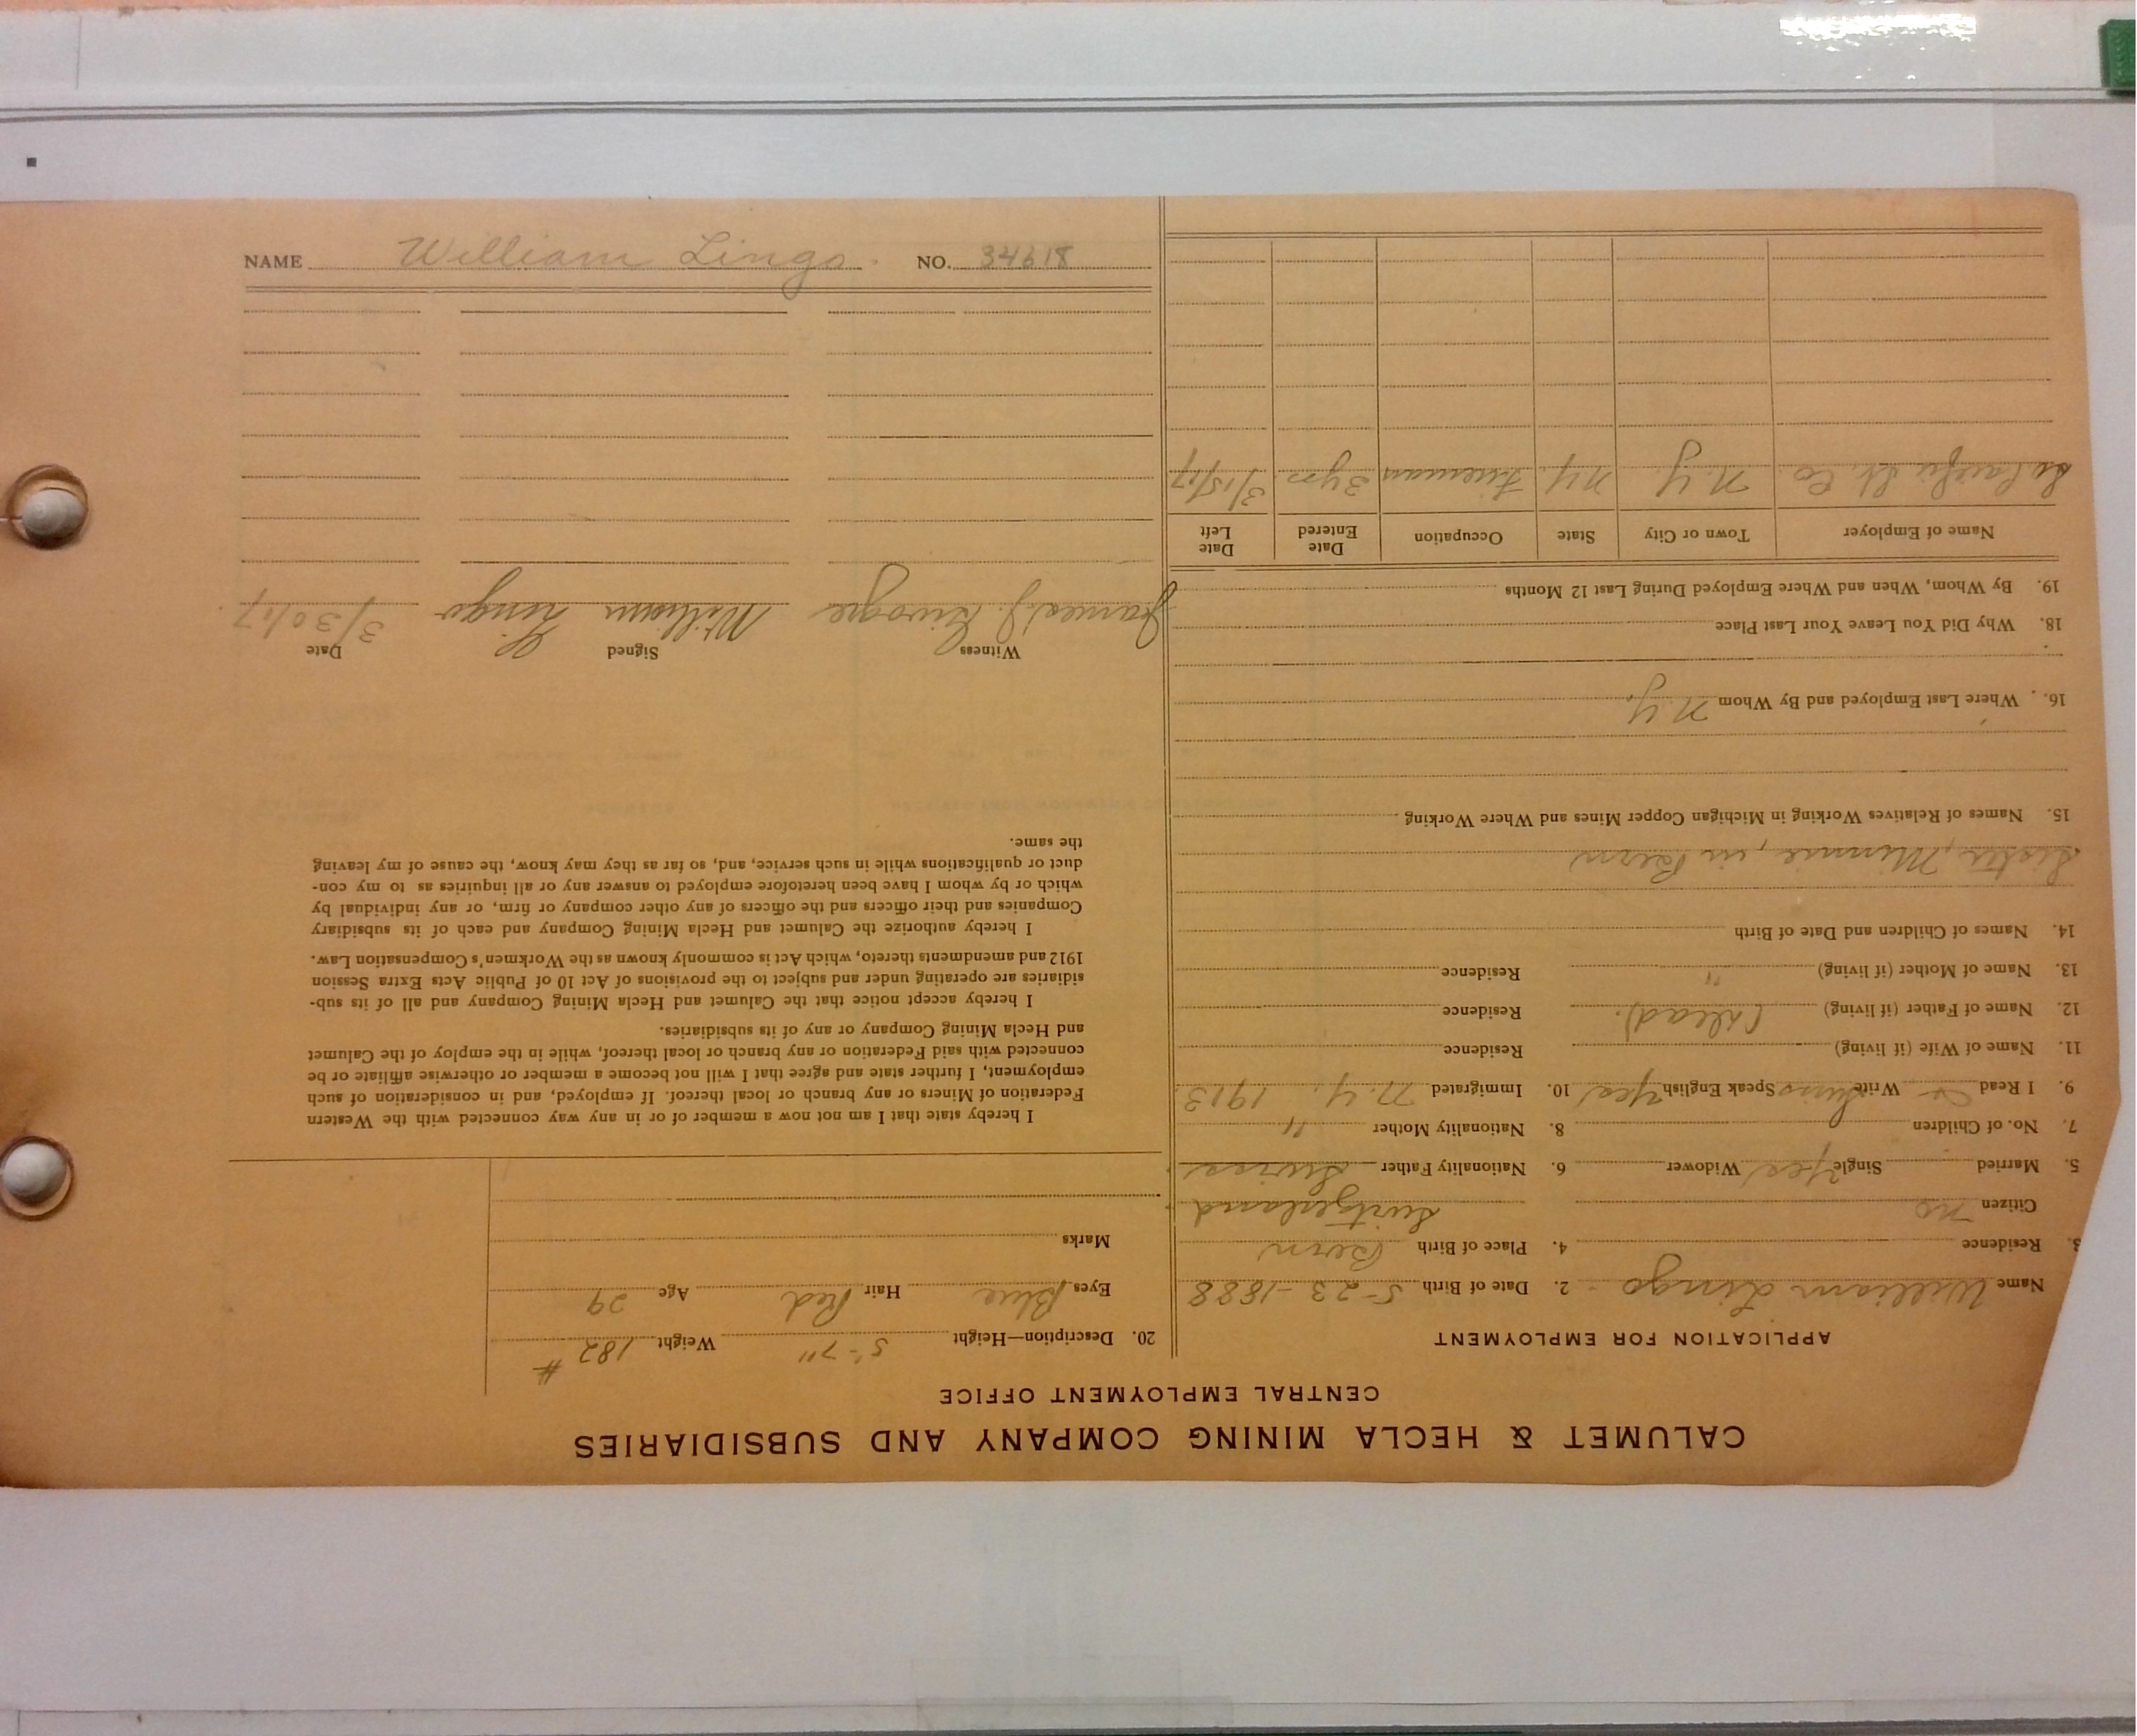 CALUMET & HECLA MINING COMPANY AND SUBSIDIARIES
CENTRAL EMPLOYMENT OFFICE
APPLICATION FOR EMPLOYMENT
Name William Lingo 2. Date of Birth 5-23-1888
3. Residence 4. Place of Birth Bern
Citizen no Switzerland
5. Married Single yes Widower 6. Nationality Father Swiss
7. No. of Children 8. Nationality Mother "
9. I Read Write Swiss Speak English yes 10. Immigrated N.Y. 1913
11. Name of Wife (if living) Residence
12. Name of Father (if living) (dead). Residence
13. Name of Mother (if living) " Residence
14. Names of Children and Date of Birth
Sister, Minnie, in Bern
15. Names of Relatives Working in Michigan Copper Mines and Where Working
16. Where Last Employed and By Whom N.Y.
18. Why Did You Leave Your Last Place
19. By Whom, When and Where Employed During Last 12 Months
Name of Employer Town or City State Occupation Date Entered Date Left
Co. N.Y. N.Y. Fireman 3 yrs 3/15/17
20. Description—Height 5'-7" Weight 182 #
Eyes Blue Hair Red Age 29
Marks
I hereby state that I am not now a member of or in any way connected with the Western
Federation of Miners or any branch or local thereof. If employed, and in consideration of such
employment, I further state and agree that I will not become a member or otherwise affiliate or be
connected with said Federation or any branch or local thereof, while in the employ of the Calumet
and Hecla Mining Company or any of its subsidiaries.
I hereby accept notice that the Calumet and Hecla Mining Company and all of its sub-
sidiaries are operating under and subject to the provisions of Act 10 of Public Acts Extra Session
1912 and amendments thereto, which Act is commonly known as the Workmen's Compensation Law.
I hereby authorize the Calumet and Hecla Mining Company and each of its subsidiary
Companies and their officers and the officers of any other company or firm, or any individual by
which or by whom I have been heretofore employed to answer any or all inquiries as to my con-
duct or qualifications while in such service, and, so far as they may know, the cause of my leaving
the same.
Witness Signed Date
James J. William L. Lingo 3/30/17
NAME William Lingo. NO. 34618